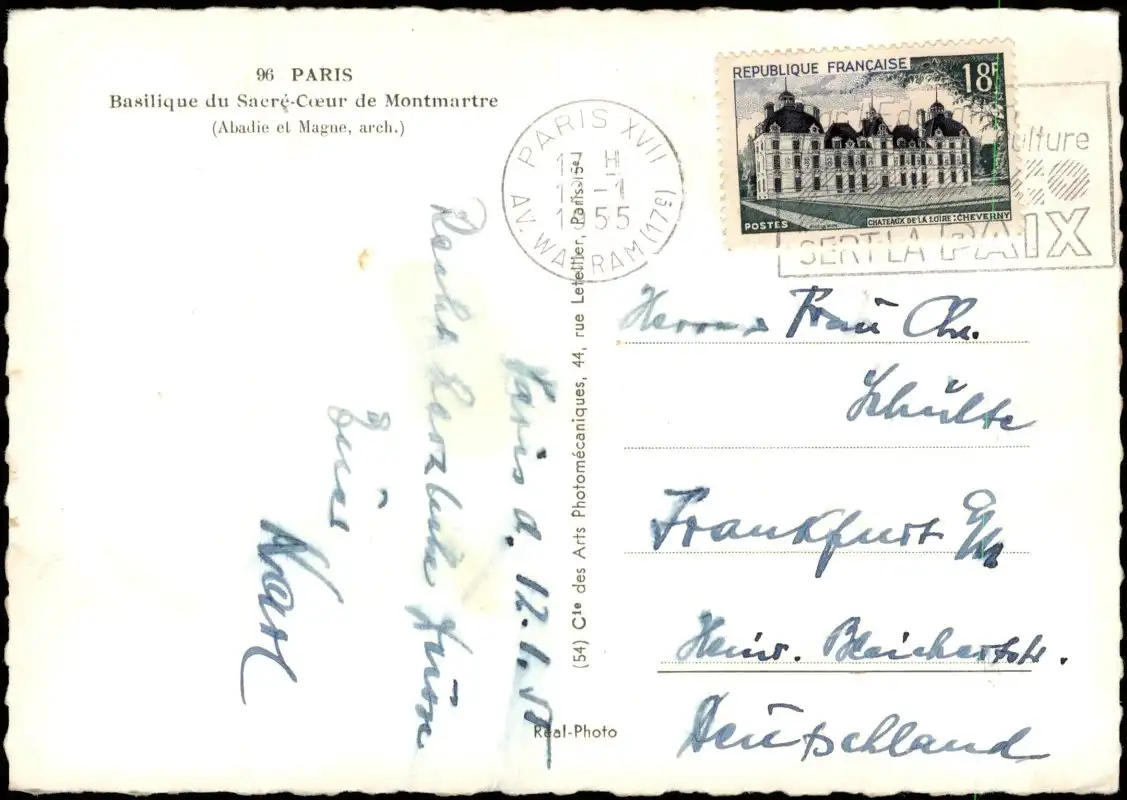 96 PARIS
Basilique du Sacré-Cœur de Montmartre
(Abadie et Magne, arch.)
PARIS XVII
17 H
1-1
1955
AV. WAGRAM (17e)
REPUBLIQUE FRANÇAISE
18F
POSTES
CHATEAUX DE LA LOIRE : CHEVERNY
culture
SERT LA PAIX
Paris d. 12.1.55
Recht herzliche Grüsse
Euer
Karl
(54) Cie des Arts Photomécaniques, 44, rue Letellier, Paris-15e
Réal-Photo
Frau Chr.
Schulte
Frankfurt
Heinr. Bleichertstr.
Deutschland